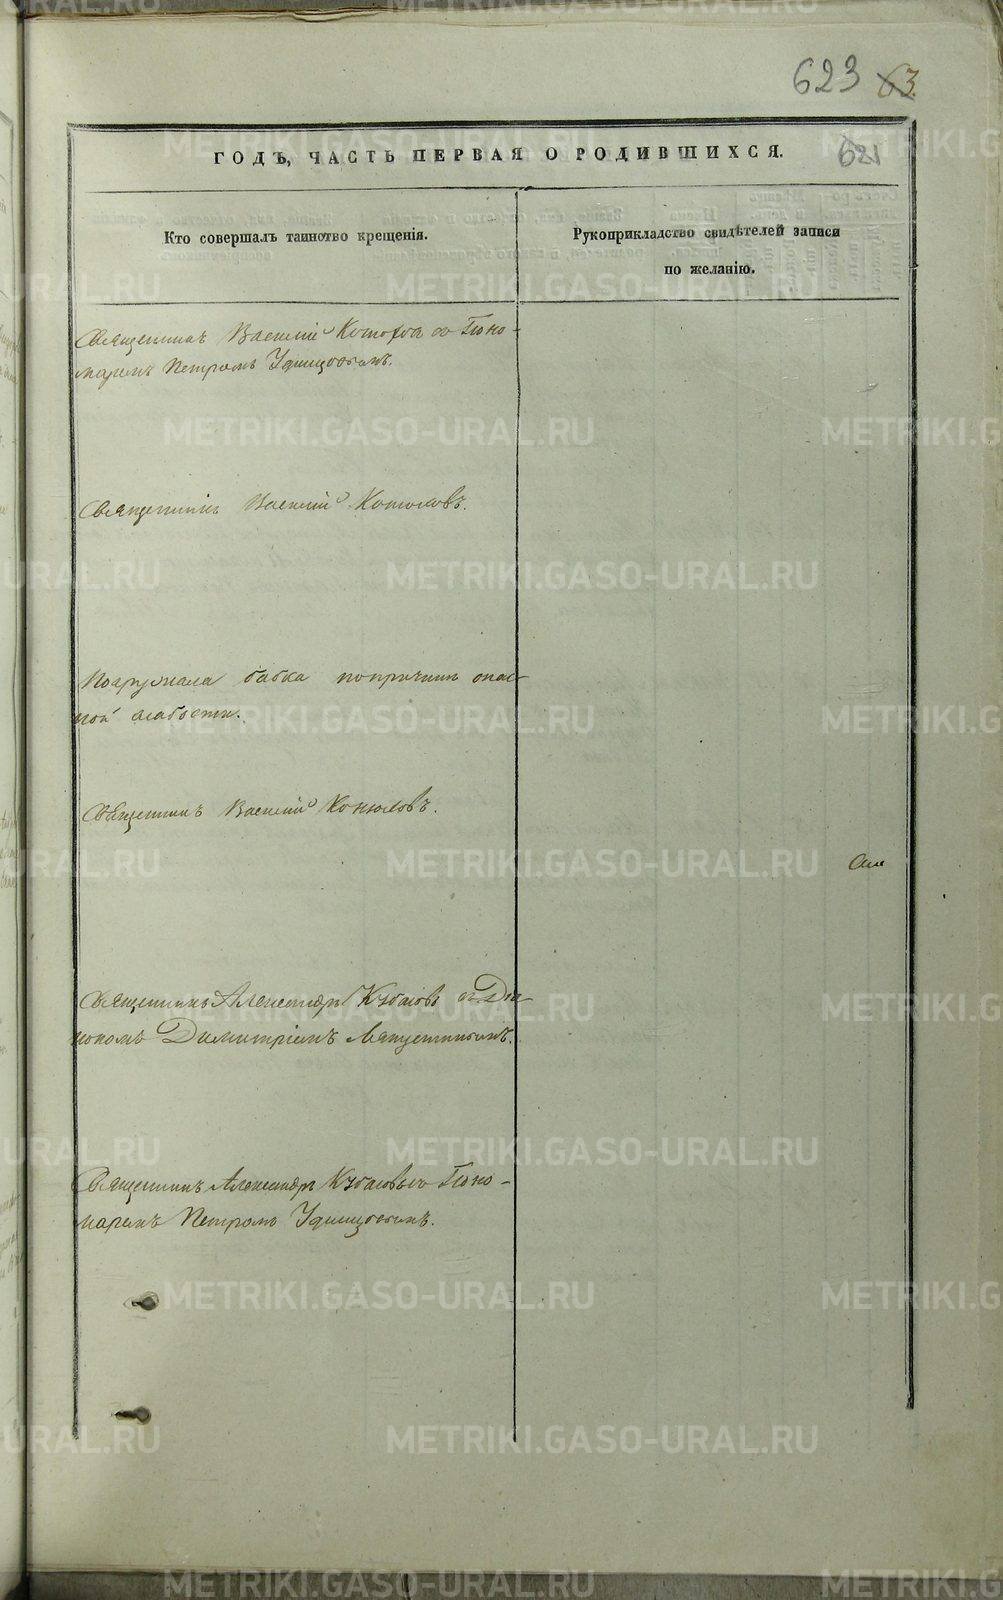 623 63.
621
ГОДЪ, ЧАСТЬ ПЕРВАЯ О РОДИВШИХСЯ.
Кто совершалъ таинство крещенія.
Рукоприкладство свидѣтелей записи
по желанію.
Священникъ Василій со Поно-
маремъ Петромъ
Священникъ Василій
Погружала бабка по причинѣ опас-
ной слабости.
Священникъ Василій
Священникъ Александръ съ Диа-
кономъ Димитріемъ
Священникъ Александръ съ Поно-
маремъ Петромъ
METRIKI.GASO-URAL.RU